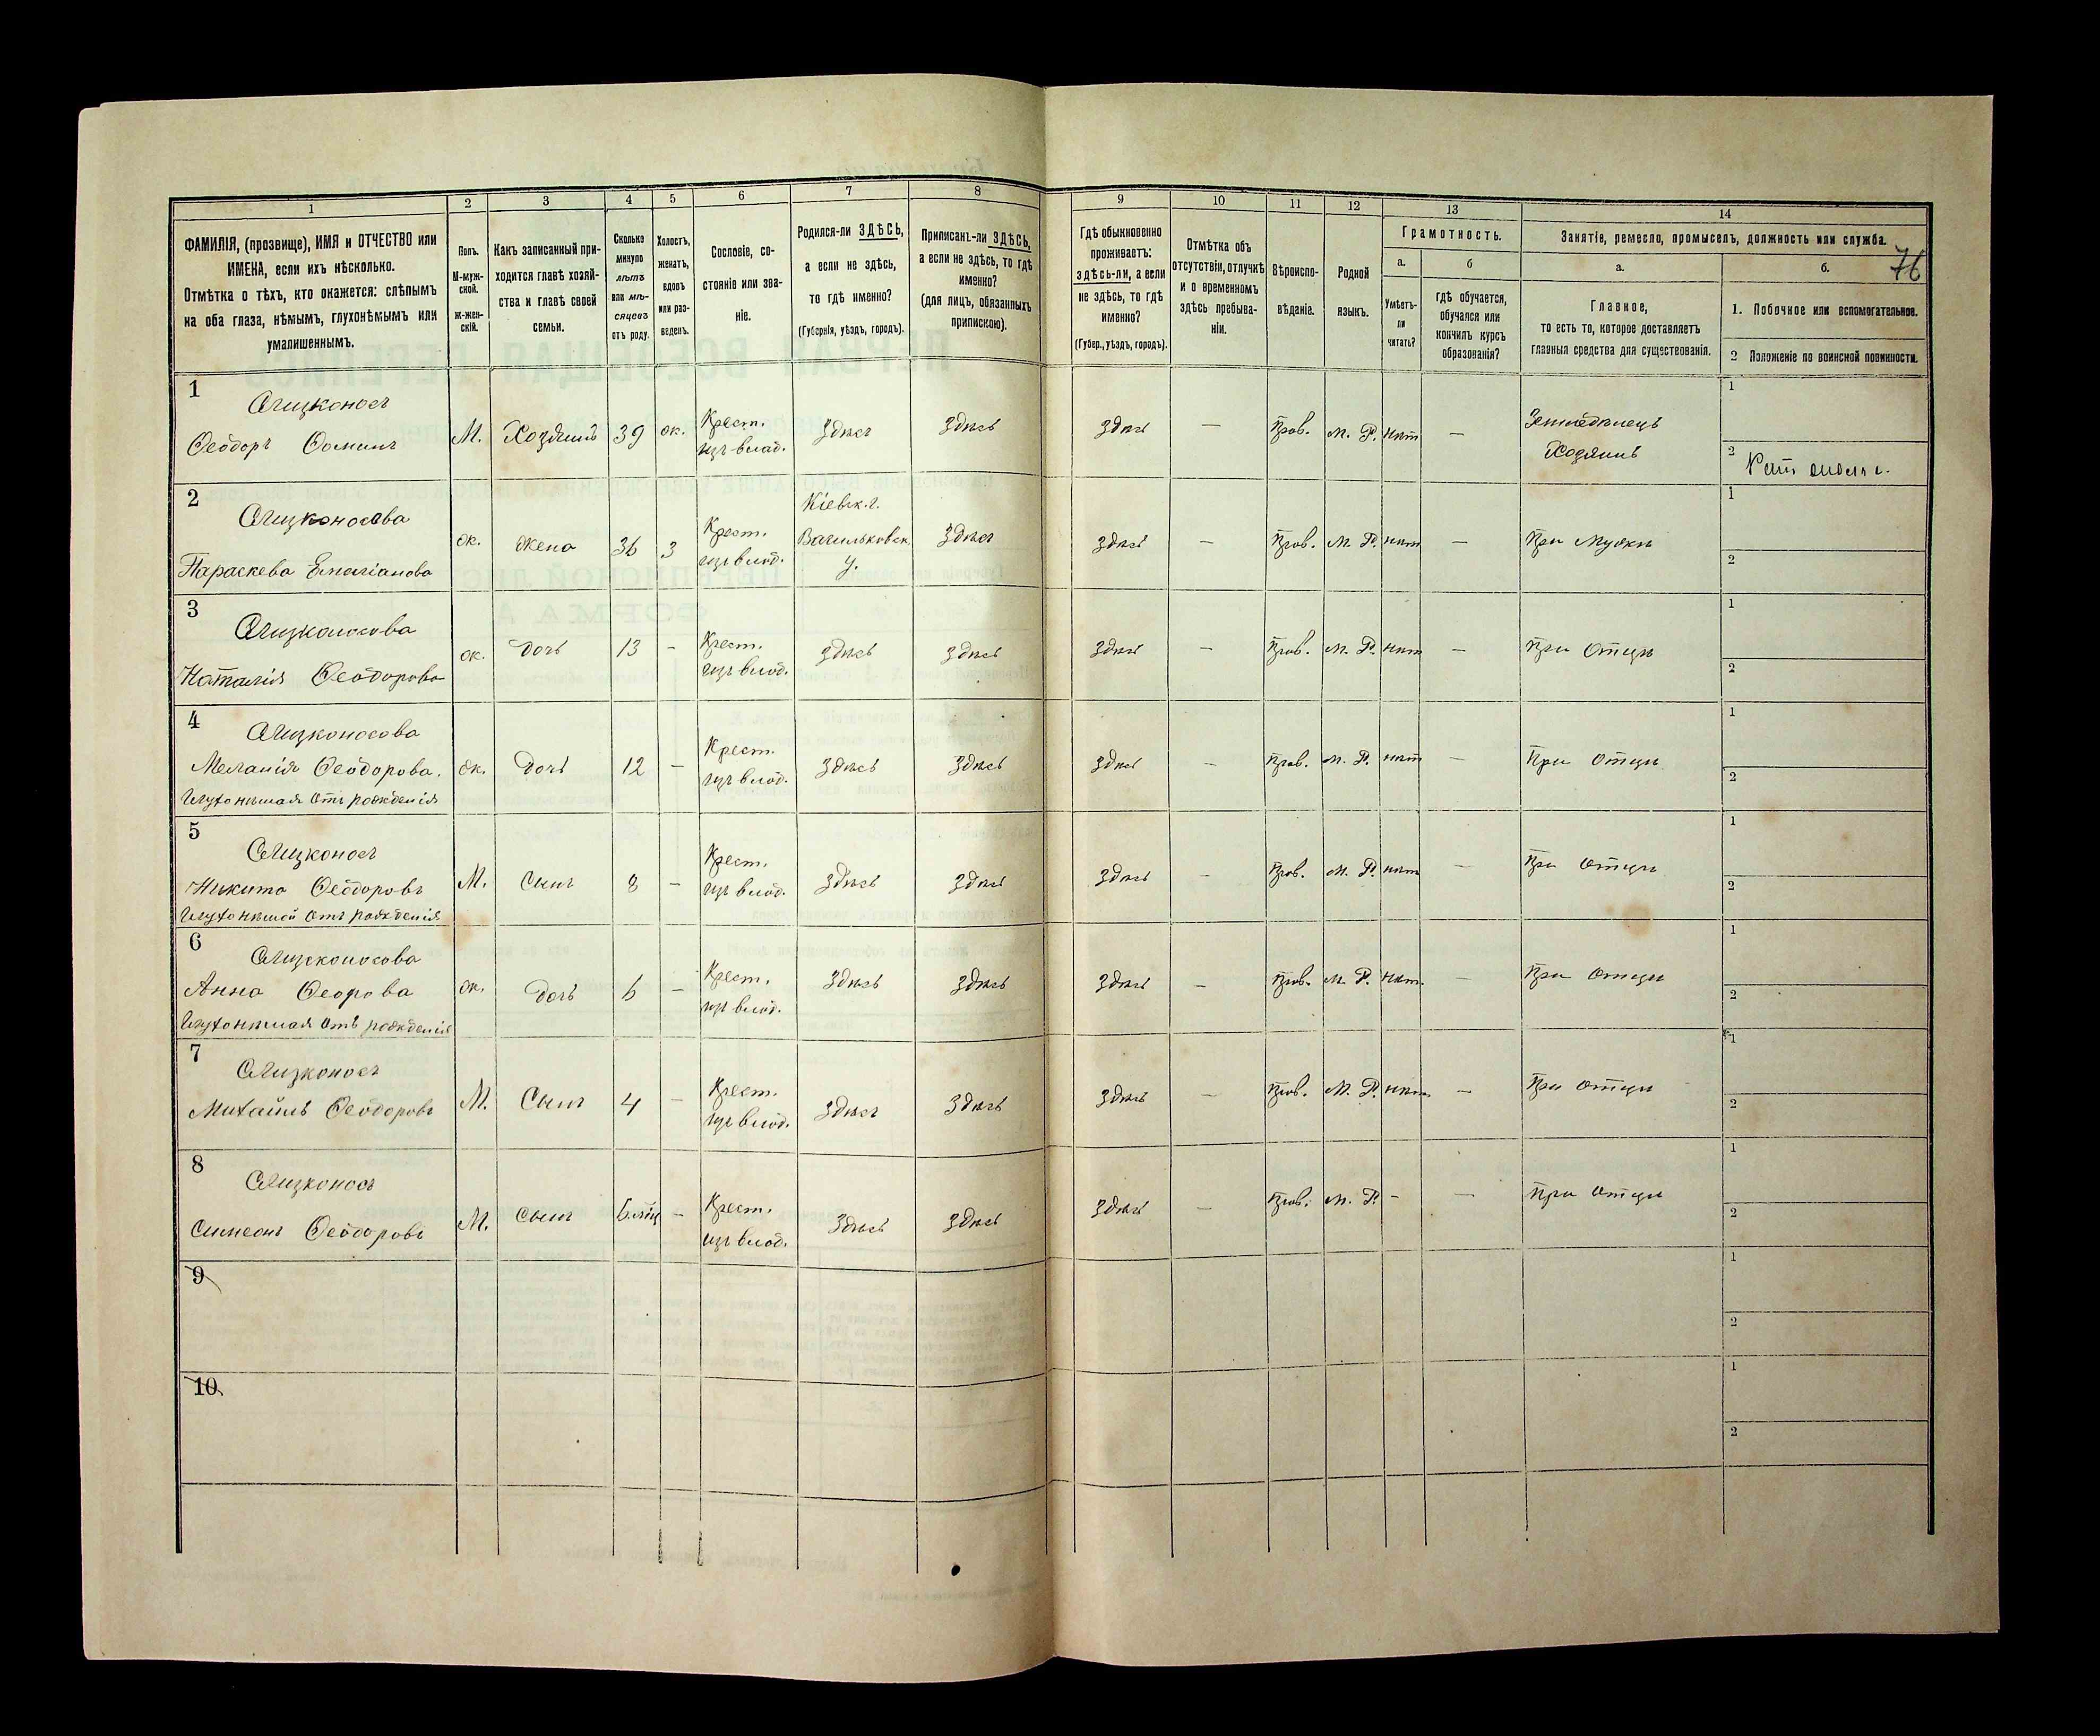 1 2 3 4 5 6 7 8 9 10 11 12 13 14
ФАМИЛІЯ, (прозвище), ИМЯ и ОТЧЕСТВО или
ИМЕНА, если ихъ нѣсколько.
Отмѣтка о тѣхъ, кто окажется: слѣпымъ
на оба глаза, нѣмымъ, глухонѣмымъ или
умалишеннымъ.
Полъ.
М-муж-
ской.
Ж-жен-
скій.
Какъ записанный при-
ходится главѣ хозяй-
ства и главѣ своей
семьи.
Сколько
минуло
лѣтъ
или мѣ-
сяцевъ
отъ роду.
Холостъ,
женатъ,
вдовъ
или раз-
веденъ.
Сословіе, со-
стояніе или зва-
ніе.
Родился-ли ЗДѢСЬ,
а если не здѣсь,
то гдѣ именно?
(Губернія, уѣздъ, городъ).
Приписанъ-ли ЗДѢСЬ,
а если не здѣсь, то гдѣ
именно?
(для лицъ, обязанныхъ
припискою).
Гдѣ обыкновенно
проживаетъ:
здѣсь-ли, а если
не здѣсь, то гдѣ
именно?
(Губер., уѣздъ, городъ).
Отмѣтка объ
отсутствіи, отлучкѣ
и о временномъ
здѣсь пребыва-
ніи.
Вѣроиспо-
вѣданіе.
Родной
языкъ.
Грамотность.
а.
Умѣетъ-
ли
читать?
б
гдѣ обучается,
обучался или
кончилъ курсъ
образованія?
Занятіе, ремесло, промыселъ, должность или служба.
76
а.
Главное,
то есть то, которое доставляетъ
главныя средства для существованія.
б.
1. Побочное или вспомогательное.
2 Положеніе по воинской повинности.
1
Слизконосъ
Ѳеодоръ Ѳоминъ
М. Хозяинъ 39 ж.
Крест.
изъ влад.
Здѣсь Здѣсь Здѣсь — Прав. М. Р. нѣт —
Земледѣлецъ
Хозяинъ
1
2
2
Слизконосова
Параскева Емиліанова
ж. жена 36 З
Крест.
изъ влад.
Кіевск. г.
Васильковск.
у.
Здѣсь Здѣсь — Прав. М. Р. нѣт — При мужѣ
1
2
3
Слизконосова
Наталія Ѳеодорова
ж. дочь 13 —
Крест.
изъ влад.
Здѣсь Здѣсь Здѣсь — Прав. М. Р. нѣт — При отцѣ
1
2
4
Слизконосова
Меланія Ѳеодорова.
Глухонѣмая отъ рожденія
ж. дочь 12 —
Крест.
изъ влад.
Здѣсь Здѣсь Здѣсь — Прав. М. Р. нѣт — При отцѣ
1
2
5
Слизконосъ
Никита Ѳеодоровъ
Глухонѣмой отъ рожденія
М. сынъ 8 —
Крест.
изъ влад.
Здѣсь Здѣсь Здѣсь — Прав. М. Р. нѣт — При отцѣ
1
2
6
Слизконосова
Анна Ѳеорова
Глухонѣмая отъ рожденія
ж. дочь 6 —
Крест.
изъ влад.
Здѣсь Здѣсь Здѣсь — Прав. М. Р. нѣт. — При отцѣ
1
2
7
Слизконосъ
Михаилъ Ѳеодоровъ
М. Сынъ 4 —
Крест.
изъ влад.
Здѣсь Здѣсь Здѣсь — Прав. М. Р. нѣт. — При отцѣ
1
2
8
Слизконосъ
Симеонъ Ѳеодоровъ
М. сынъ —
Крест.
изъ влад.
Здѣсь Здѣсь Здѣсь — Прав. М. Р. - — При отцѣ
1
2
9
1
2
10
1
2